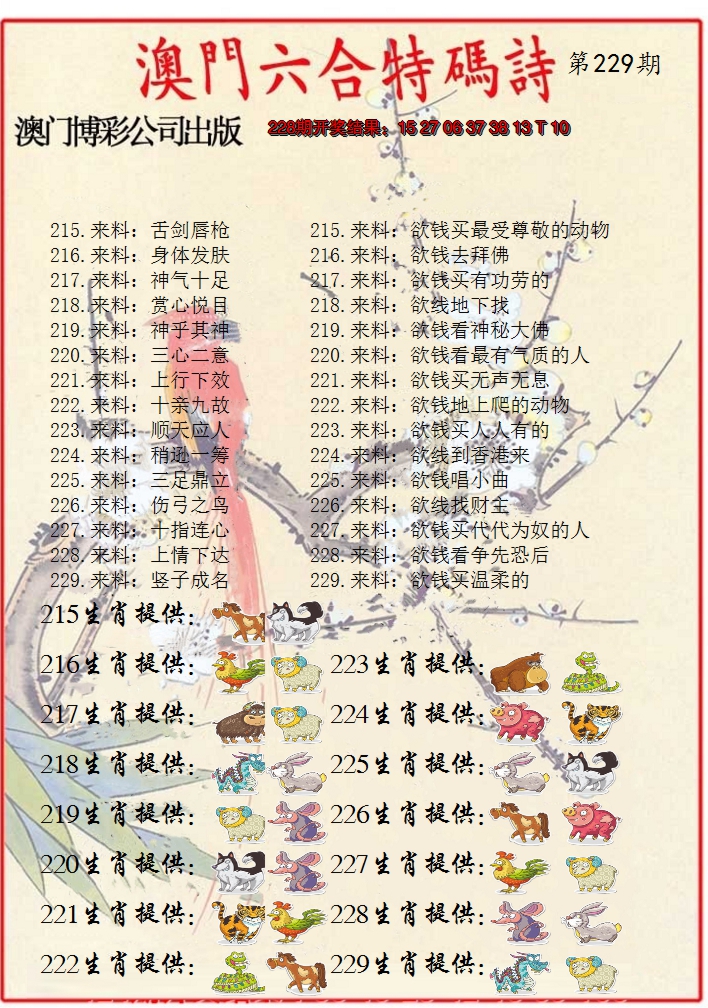 澳門六合特碼詩 第229期
澳门博彩公司出版 228期开奖结果：15 27 06 37 38 13 T 10
215.来料：舌剑唇枪 215.来料：欲钱买最受尊敬的动物
216.来料：身体发肤 216.来料：欲钱去拜佛
217.来料：神气十足 217.来料：欲钱买有功劳的
218.来料：赏心悦目 218.来料：欲线地下找
219.来料：神乎其神 219.来料：欲钱看神秘大佛
220.来料：三心二意 220.来料：欲钱看最有气质的人
221.来料：上行下效 221.来料：欲钱买无声无息
222.来料：十亲九故 222.来料：欲钱地上爬的动物
223.来料：顺天应人 223.来料：欲钱买人人有的
224.来料：稍逊一筹 224.来料：欲线到香港来
225.来料：三足鼎立 225.来料：欲钱唱小曲
226.来料：伤弓之鸟 226.来料：欲线找财主
227.来料：十指连心 227.来料：欲钱买代代为奴的人
228.来料：上情下达 228.来料：欲钱看争先恐后
229.来料：竖子成名 229.来料：欲钱买温柔的
215生肖提供：
216生肖提供： 223生肖提供：
217生肖提供： 224生肖提供：
218生肖提供： 225生肖提供：
219生肖提供： 226生肖提供：
220生肖提供： 227生肖提供：
221生肖提供： 228生肖提供：
222生肖提供： 229生肖提供：